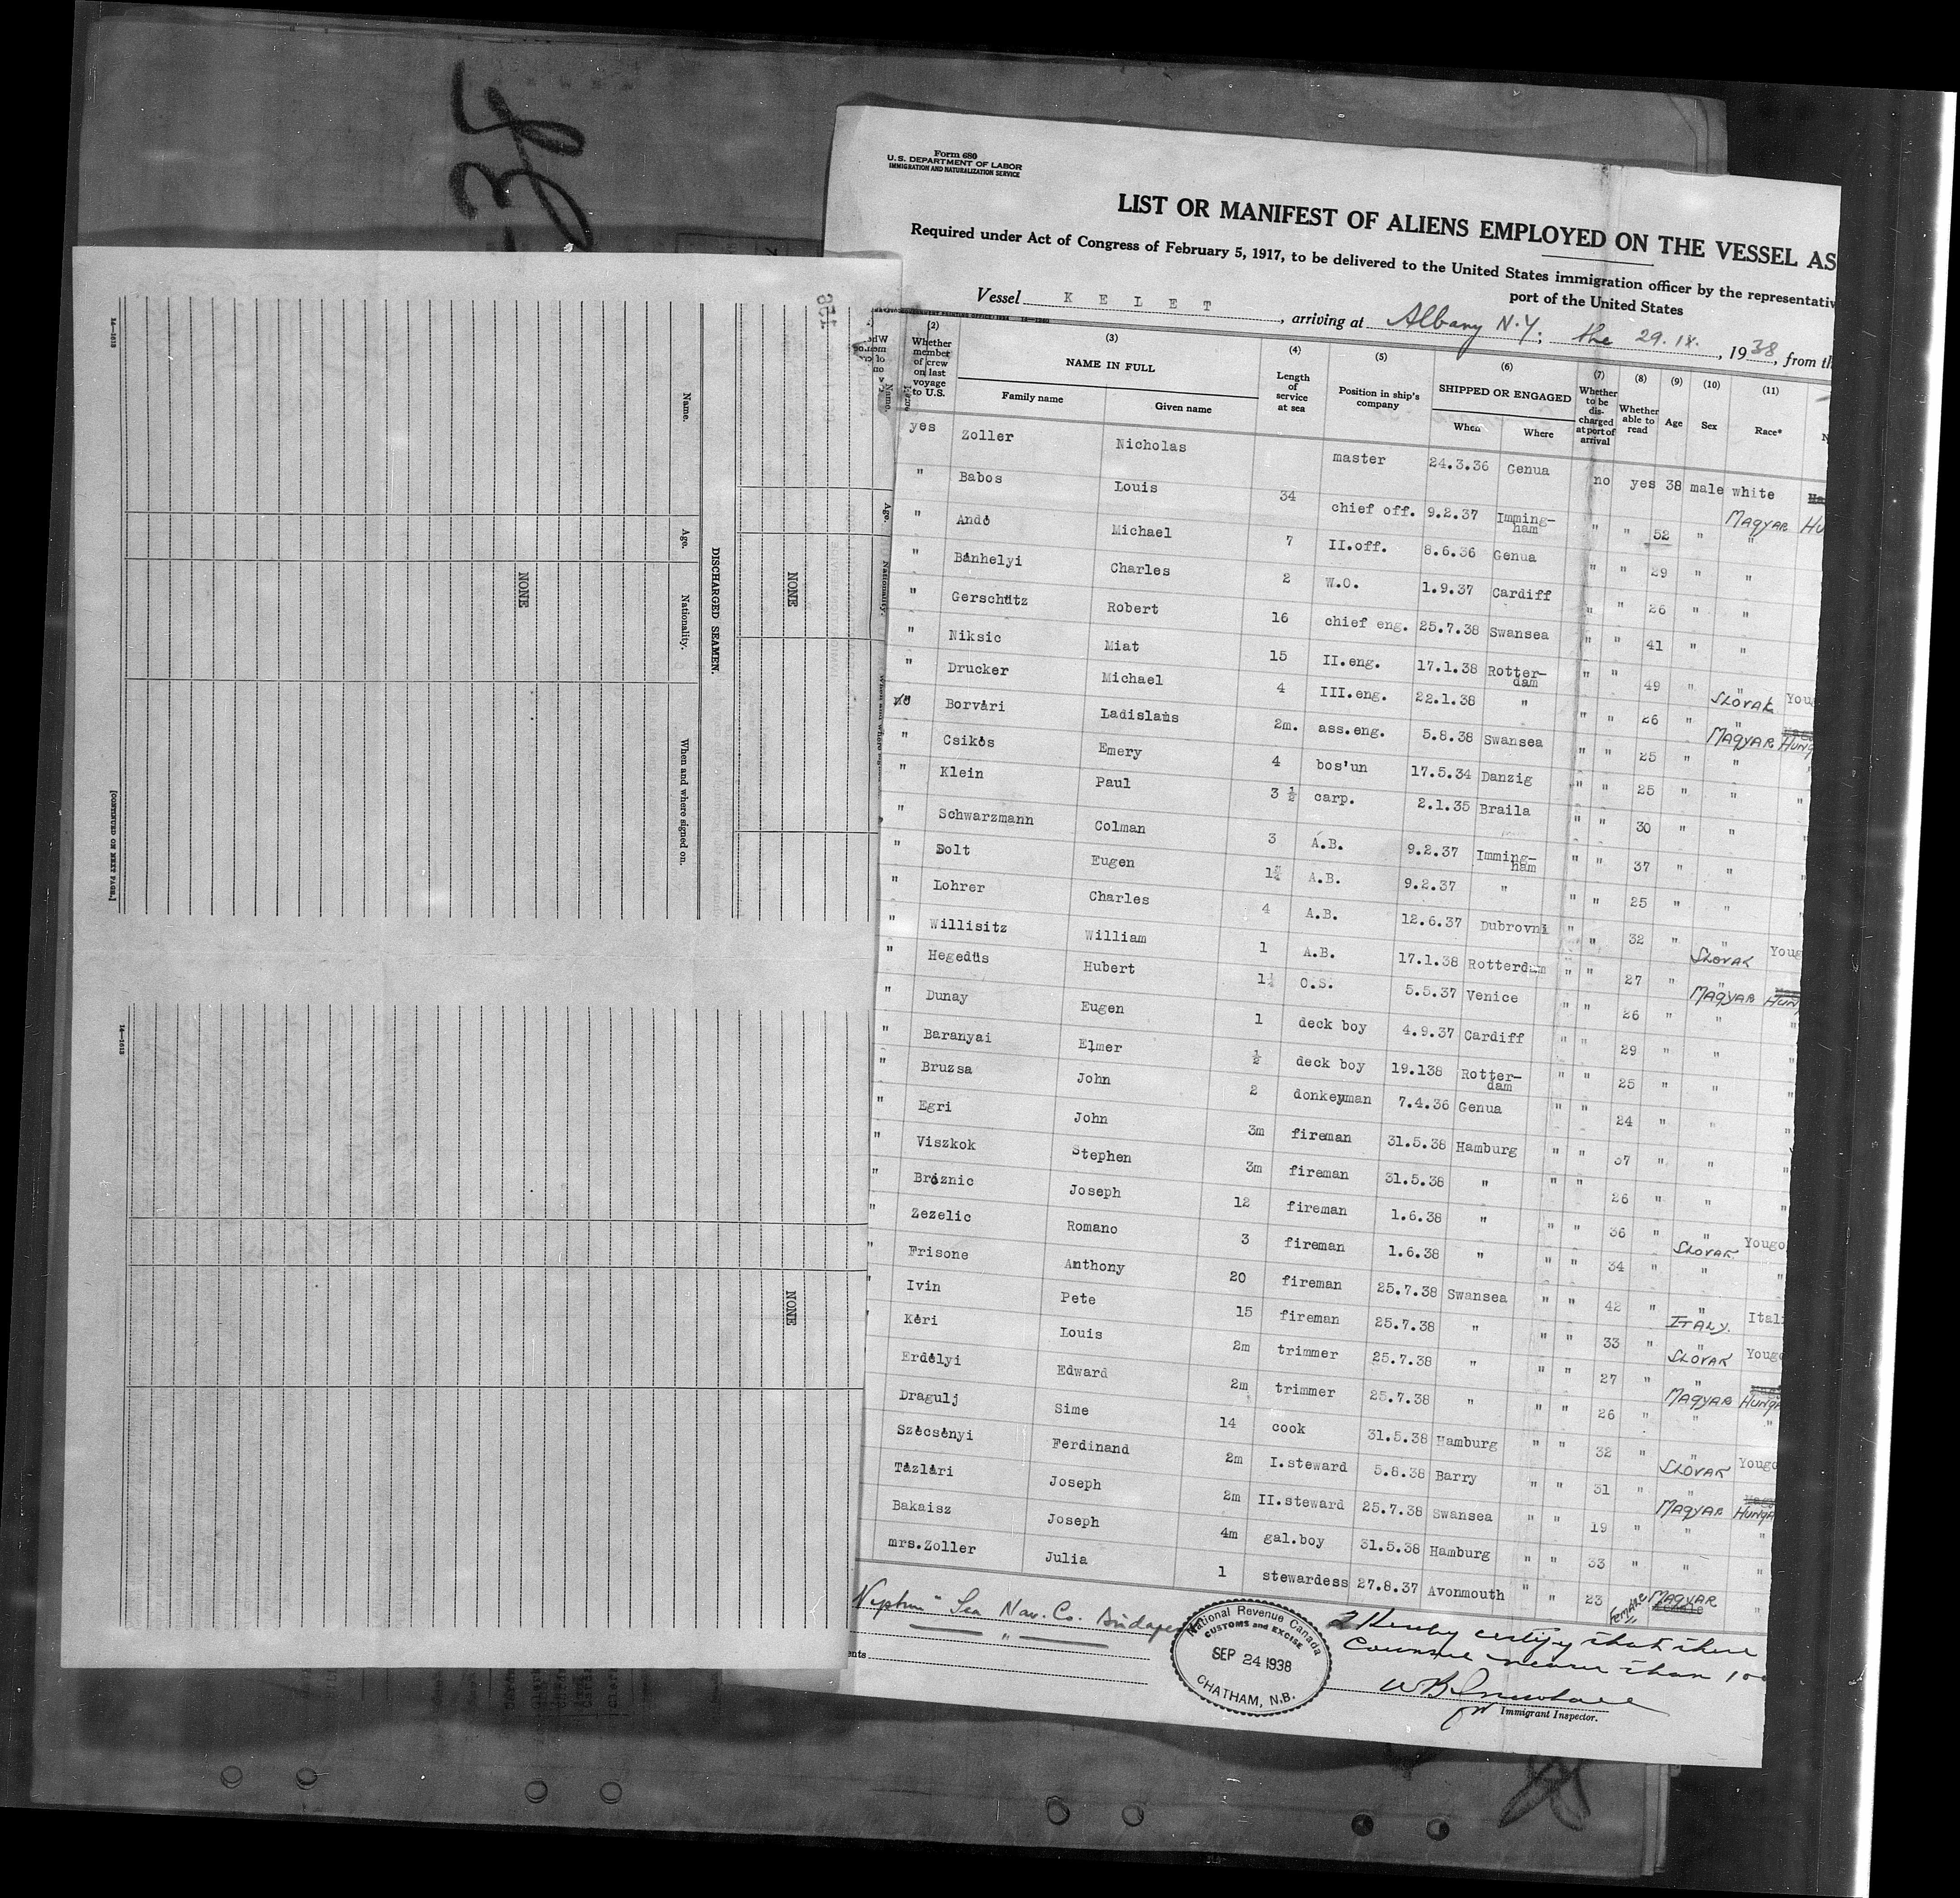 Form 680
U.S. DEPARTMENT OF LABOR
IMMIGRATION AND NATURALIZATION SERVICE
LIST OR MANIFEST OF ALIENS EMPLOYED ON THE VESSEL AS
Required under Act of Congress of February 5, 1917, to be delivered to the United States immigration officer by the representativ
port of the United States
Vessel K E L E T, arriving at Albany N.Y. the 29.IX., 1938, from th
(2) Whether member of crew on last voyage to U.S.
(3) NAME IN FULL Family name Given name
(4) Length of service at sea
(5) Position in ship's company
(6) SHIPPED OR ENGAGED When Where
(7) Whether to be discharged at port of arrival
(8) Whether able to read
(9) Age
(10) Sex
(11) Race*
yes Zoller Nicholas master 24.3.36 Genua no yes 38 male white MAGYAR Hu
" Babos Louis 34 chief off. 9.2.37 Immingham " " 52 " "
" Andó Michael 7 II.off. 8.6.36 Genua " " 29 " "
" Bánhelyi Charles 2 W.O. 1.9.37 Cardiff " " 26 " "
" Gerschütz Robert 16 chief eng. 25.7.38 Swansea " " 41 " "
" Niksic Miat 15 II.eng. 17.1.38 Rotterdam " " 49 " " SLOVAK You
" Drucker Michael 4 III.eng. 22.1.38 " " " 26 " " MAGYAR HUNG
no Borvári Ladislaus 2m. ass.eng. 5.8.38 Swansea " " 25 " "
" Csikós Emery 4 bos'un 17.5.34 Danzig " " 25 " " "
" Klein Paul 3 ½ carp. 2.1.35 Braila " " 30 " " "
" Schwarzmann Colman 3 A.B. 9.2.37 Immingham " " 37 " " "
" Solt Eugen A.B. 9.2.37 " " " 25 " " "
" Lohrer Charles 4 A.B. 12.6.37 Dubrovni " " 32 " " SLOVAK Youg
" Willisitz William 1 A.B. 17.1.38 Rotterdam " " 27 " " MAGYAR HUN
" Hegedüs Hubert O.S. 5.5.37 Venice " " 26 " " "
" Dunay Eugen 1 deck boy 4.9.37 Cardiff " " 29 " " "
" Baranyai Elmer ½ deck boy 19.138 Rotterdam " " 25 " " "
" Bruzsa John 2 donkeyman 7.4.36 Genua " " 24 " " "
" Egri John 3m fireman 31.5.38 Hamburg " " 37 " " "
" Viszkok Stephen 3m fireman 31.5.38 " " " 26 " " "
" Bróznic Joseph 12 fireman 1.6.38 " " " 36 " " SLOVAK Yougo
" Zezelic Romano 3 fireman 1.6.38 " " " 34 " " "
" Frisone Anthony 20 fireman 25.7.38 Swansea " " 42 " " ITALY. Ital
" Ivin Pete 15 fireman 25.7.38 " " " 33 " " SLOVAK Yougo
" Kéri Louis 2m trimmer 25.7.38 " " " 27 " " MAGYAR HUNGA
" Erdélyi Edward 2m trimmer 25.7.38 " " " 26 " " "
" Dragulj Sime 14 cook 31.5.38 Hamburg " " 32 " " SLOVAK Yougo
Szécsényi Ferdinand 2m I.steward 5.8.38 Barry " " 31 " " MAGYAR HUNGA
Tázlári Joseph 2m II.steward 25.7.38 Swansea " " 19 " " "
Bakaisz Joseph 4m gal.boy 31.5.38 Hamburg " " 33 " " "
mrs.Zoller Julia 1 stewardess 27.8.37 Avonmouth " " 23 female MAGYAR "
"Neptun" Sea Nav. Co. Budape
National Revenue Canada
CUSTOMS and EXCISE
SEP 24 1938
CHATHAM, N.B.
I Hereby certify that there
Counsul nearer than 100
Immigrant Inspector.
DISCHARGED SEAMEN.
Name.
Age.
Nationality.
When and where signed on.
NONE
NONE
NONE
[CONTINUED ON NEXT PAGE.]
14—1613
14—1613